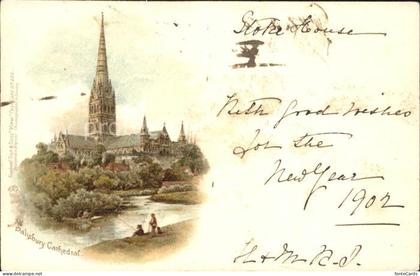 Stoke House
With good wishes
for the
New Year
1902
Salisbury Cathedral.